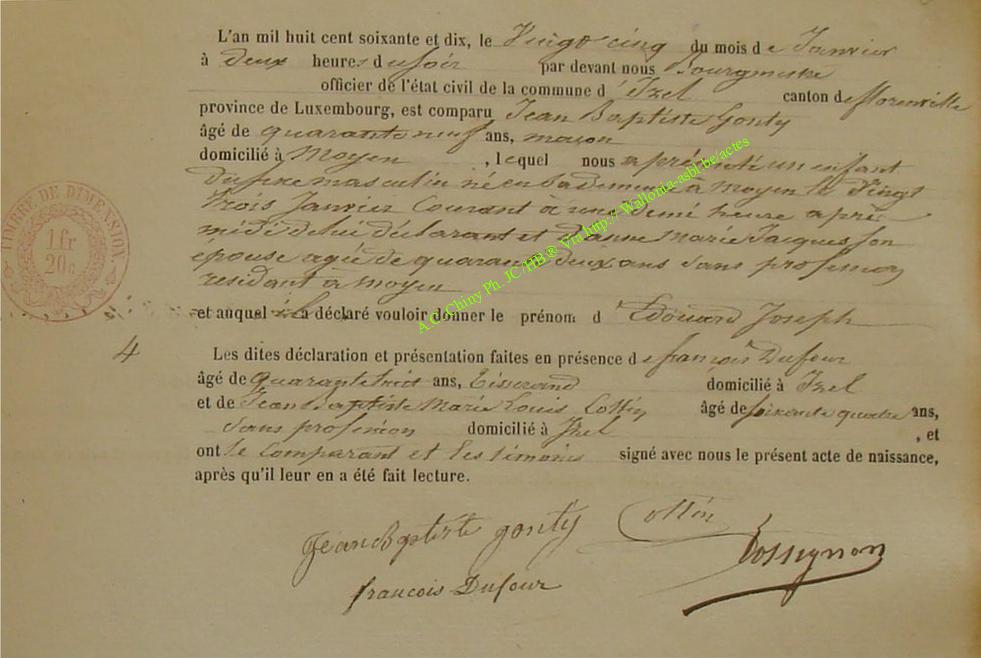 L'an mil huit cent soixante et dix, le Vingt cinq du mois de Janvier
à deux heures du soir par devant nous Bourgmestre
officier de l'état civil de la commune d'Izel canton de florenville
province de Luxembourg, est comparu Jean Baptiste Gonty
âgé de quarante neuf ans, maçon
domicilié à Moyen, lequel nous a présenté un enfant
du sexe masculin né en sa demeure à Moyen le Vingt
trois Janvier Courant à une demi heure après
midi de lui déclarant et d'anne Marie Jacques son
épouse agée de quarante deux ans sans profession
residant à moyen
et auquel il a déclaré vouloir donner le prénom d'Edouard Joseph
4
Les dites déclaration et présentation faites en présence de françois Dufour
âgé de quarante trois ans, tisserand domicilié à Izel
et de Jean Baptiste Marie Louis Collin âgé de soixante quatre ans,
sans profession domicilié à Izel, et
ont le Comparant et les témoins signé avec nous le présent acte de naissance,
après qu'il leur en a été fait lecture.
Jean Baptiste gonty Collin
françois Dufour Rossignon
TIMBRE DE DIMENSION
1 fr
20 c
A.C. Chiny Ph. JC/HB ® Via http://Wallonia-asbl.be/actes